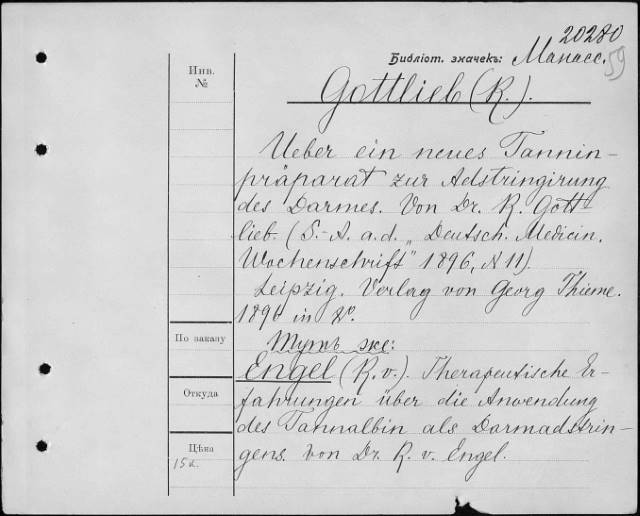 20280
Библіот. значекъ: Манасс.
59
Инв.
№
Gottlieb (R.).
Ueber ein neues Tannin-
präparat zur Adstringirung
des Darmes. Von Dr. R. Gott-
lieb. (S.-A. a. d. „Deutsch. Medicin.
Wochenschrift" 1896, N 11).
Leipzig. Verlag von Georg Thieme.
1896 in 8º.
По заказу
Тутъ же:
Engel (R. v.). Therapeutische Er-
Откуда
fahrungen über die Anwendung
des Tannalbin als Darmadstrin-
Цѣна
gens. von Dr. R. v. Engel.